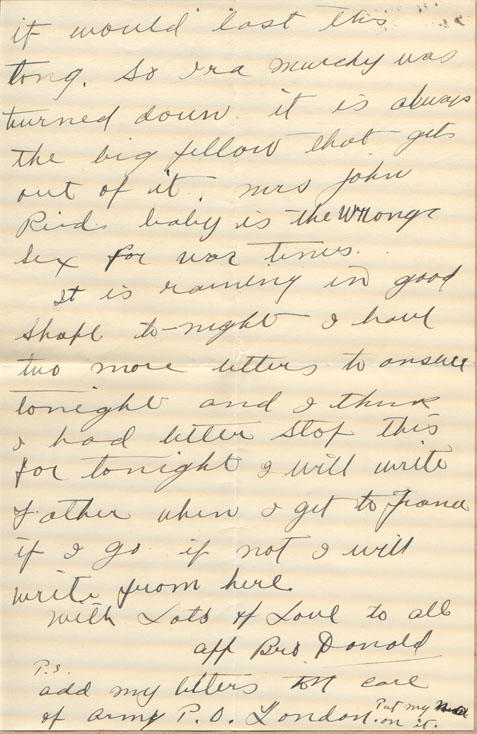 it would last this
long. So Ira Murchy was
turned down it is always
the big fellow that gets
out of it. Mrs John
Rieds baby is the wrong
sex for war times.
It is raining in good
shape to-night I have
two more letters to answer
tonight and I think
I had better stop this
for tonight I will write
Father when I get to France
if I go if not I will
write from here.
With Lots of Love to all
aff Bro Donald
P.S.
add my letters in care
of army P.O. London. Put my
on it.